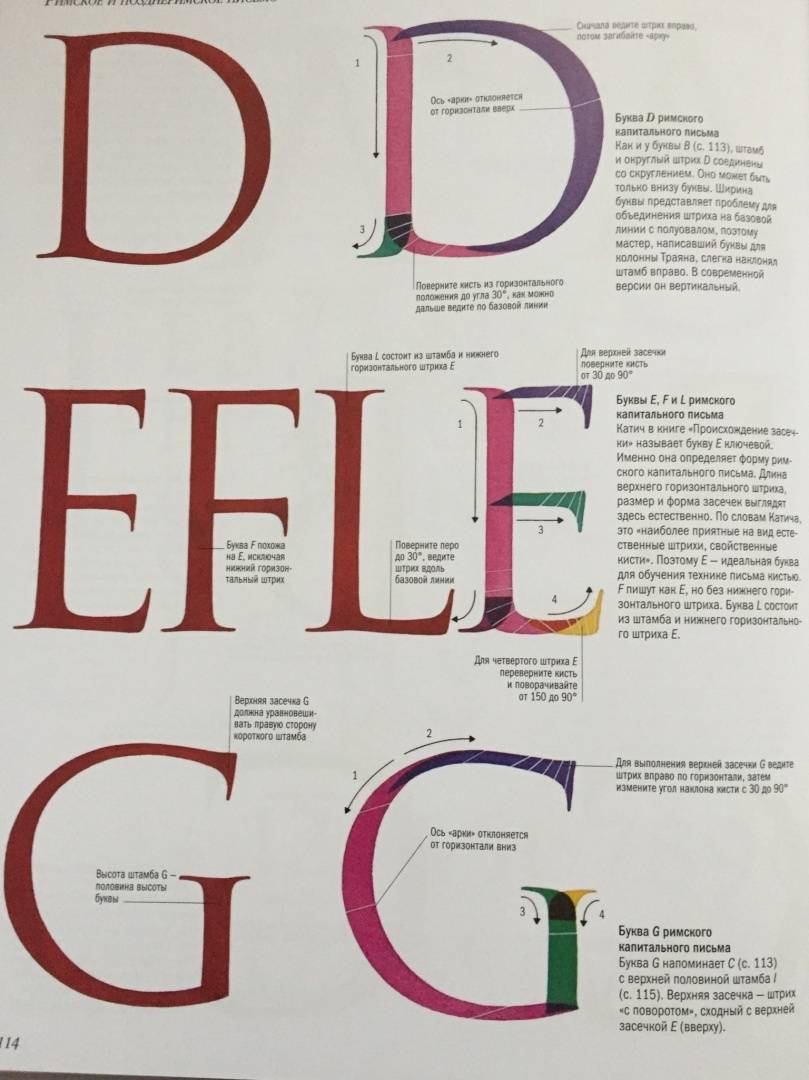 РИМСКОЕ И ПОЗДНЕРИМСКОЕ ПИСЬМО
D
D
1
2
3
Сначала ведите штрих вправо,
потом загибайте «арку»
Ось «арки» отклоняется
от горизонтали вверх
Поверните кисть из горизонтального
положения до угла 30°, как можно
дальше ведите по базовой линии
Буква D римского
капитального письма
Как и у буквы B (с. 113), штамб
и округлый штрих D соединены
со скруглением. Оно может быть
только внизу буквы. Ширина
буквы представляет проблему для
объединения штриха на базовой
линии с полуовалом, поэтому
мастер, написавший буквы для
колонны Траяна, слегка наклонял
штамб вправо. В современной
версии он вертикальный.
Буква L состоит из штамба и нижнего
горизонтального штриха E
Для верхней засечки
поверните кисть
от 30 до 90°
EFLE
1
2
3
4
Буква F похожа
на E, исключая
нижний горизон-
тальный штрих
Поверните перо
до 30°, ведите
штрих вдоль
базовой линии
Для четвертого штриха E
переверните кисть
и поворачивайте
от 150 до 90°
Буквы E, F и L римского
капитального письма
Катич в книге «Происхождение засеч-
ки» называет букву E ключевой.
Именно она определяет форму рим-
ского капитального письма. Длина
верхнего горизонтального штриха,
размер и форма засечек выглядят
здесь естественно. По словам Катича,
это «наиболее приятные на вид есте-
ственные штрихи, свойственные
кисти». Поэтому E – идеальная буква
для обучения технике письма кистью.
F пишут как E, но без нижнего гори-
зонтального штриха. Буква L состоит
из штамба и нижнего горизонтально-
го штриха E.
Верхняя засечка G
должна уравновеши-
вать правую сторону
короткого штамба
G
G
1
2
3
4
Высота штамба G –
половина высоты
буквы
Ось «арки» отклоняется
от горизонтали вниз
Для выполнения верхней засечки G ведите
штрих вправо по горизонтали, затем
измените угол наклона кисти с 30 до 90°
Буква G римского
капитального письма
Буква G напоминает C (с. 113)
с верхней половиной штамба I
(с. 115). Верхняя засечка – штрих
«с поворотом», сходный с верхней
засечкой E (вверху).
114